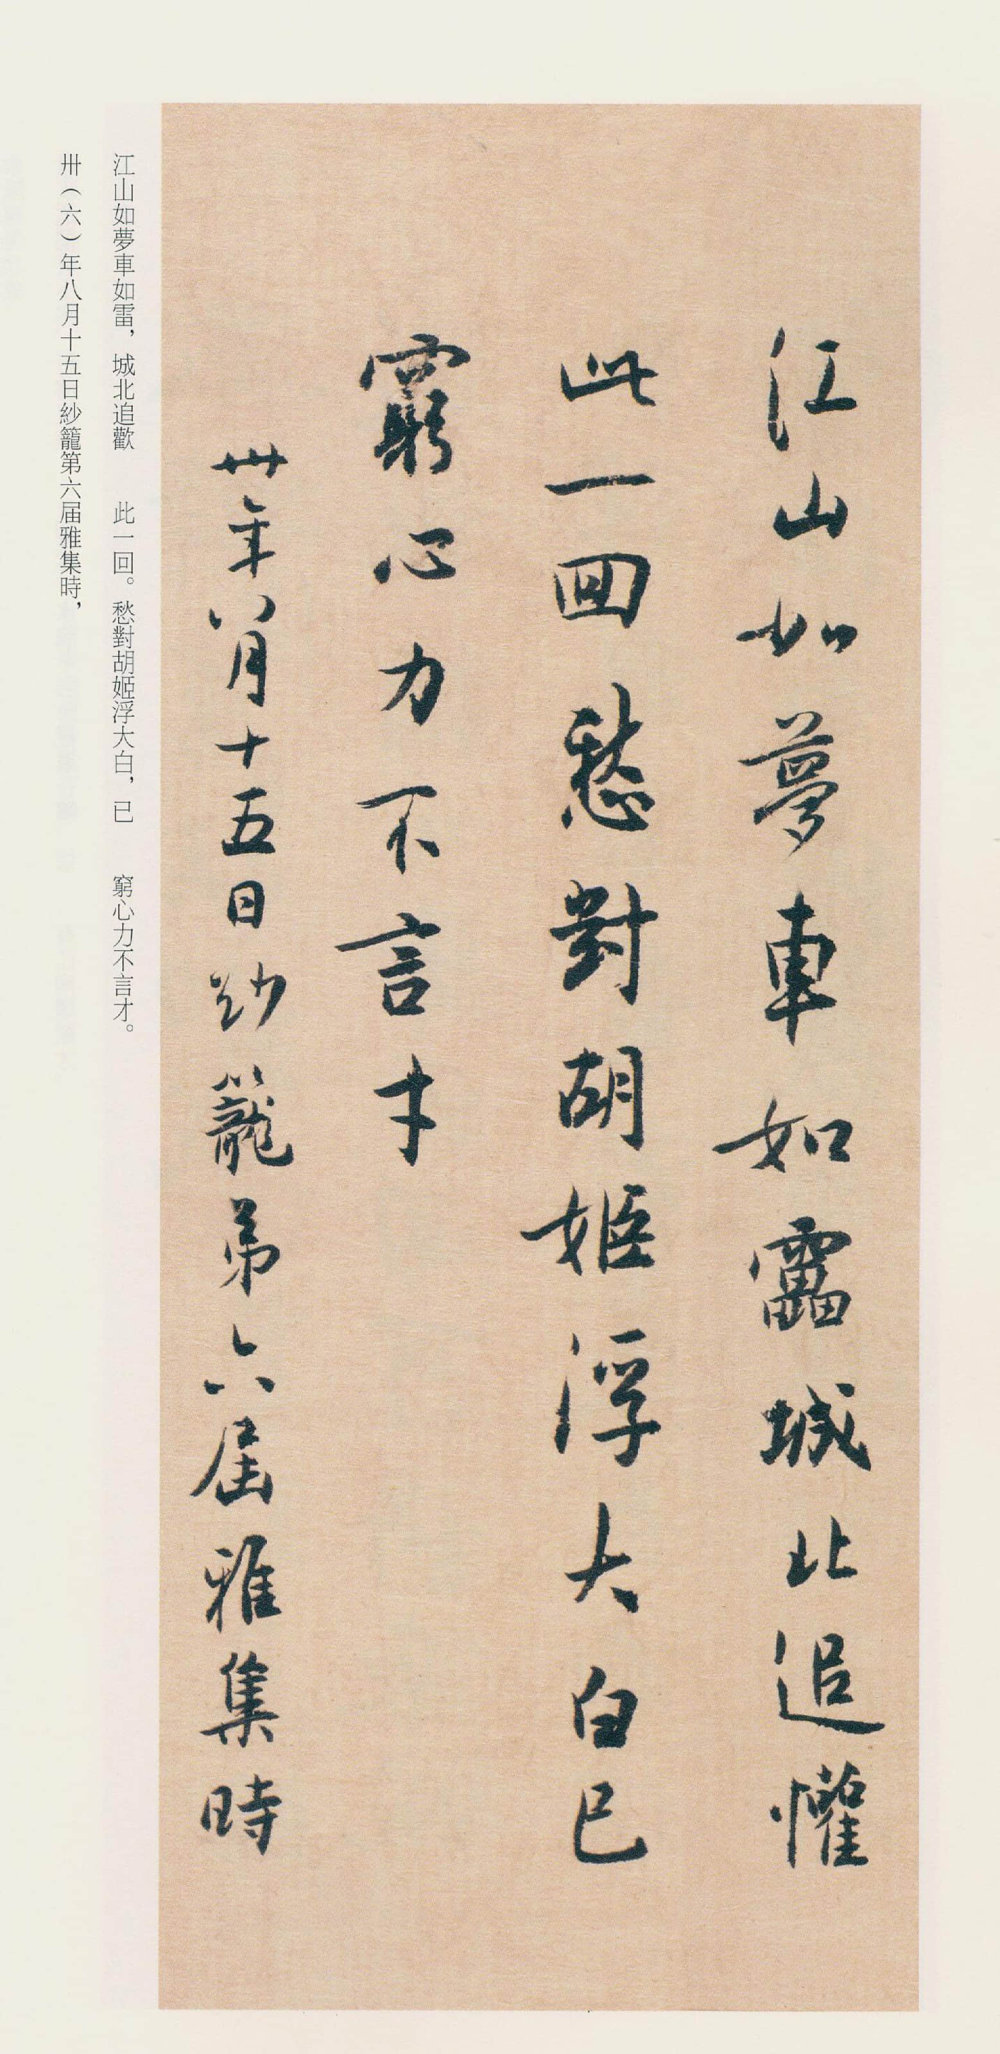 江山如夢車如靁城北追懽
此一回愁對胡姬浮大白已
窮心力不言才
卅年八月十五日紗籠弟六屆雅集時
江山如夢車如雷，城北追歡　此一回。愁對胡姬浮大白，已　窮心力不言才。
卅（六）年八月十五日紗籠第六届雅集時，